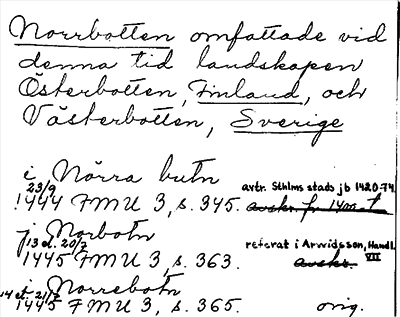 Norrbotten omfattade vid
denna tid landskapen
Österbotten, Finland, och
Västerbotten, Sverige
i Nörra butn
23/9 avtr. Sthlms stads jb 1420-74.
1444 FMU 3, s. 345. avskr. fr
j Norbotn
13 el. 20/7 referat i Arwidsson, Handl. VII
1445 FMU 3, s. 363. avskr.
i Norrebotn
14 el. 21/7
1445 FMU 3, s. 365. orig.